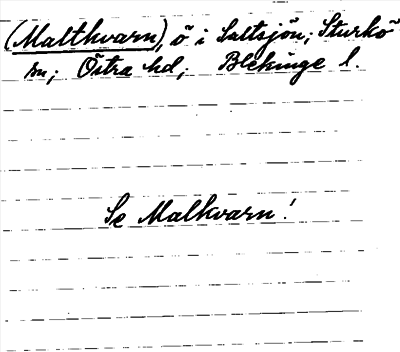 (Malthvarn), ö i Saltsjön; Sturkö
sn; Östra hd; Blekinge l.
Se Malkvarn!